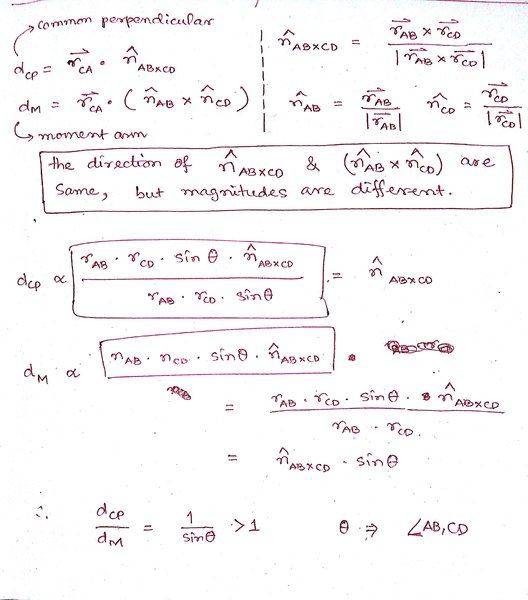 common perpendicular
d_CP = r⃗_CA · n̂_ABxCD
d_M = r⃗_CA · (n̂_AB × n̂_CD)
moment arm
n̂_ABxCD = (r⃗_AB × r⃗_CD) / |r⃗_AB × r⃗_CD|
n̂_AB = r⃗_AB / |r⃗_AB|   n̂_CD = r⃗_CD / |r⃗_CD|
the direction of n̂_ABXCD & (n̂_AB × n̂_CD) are
same, but magnitudes are different.
d_CP ∝ (r_AB · r_CD · sin θ · n̂_ABXCD) / (r_AB · r_CD · sinθ) = n̂_ABXCD
d_M ∝ n_AB · n_CD · sinθ · n̂_ABXCD
= (r_AB · r_CD · sinθ · n̂_ABXCD) / (r_AB · r_CD)
= n̂_ABXCD · sinθ
∴ d_CP / d_M = 1 / sinθ > 1   θ ⇒ ∠AB,CD